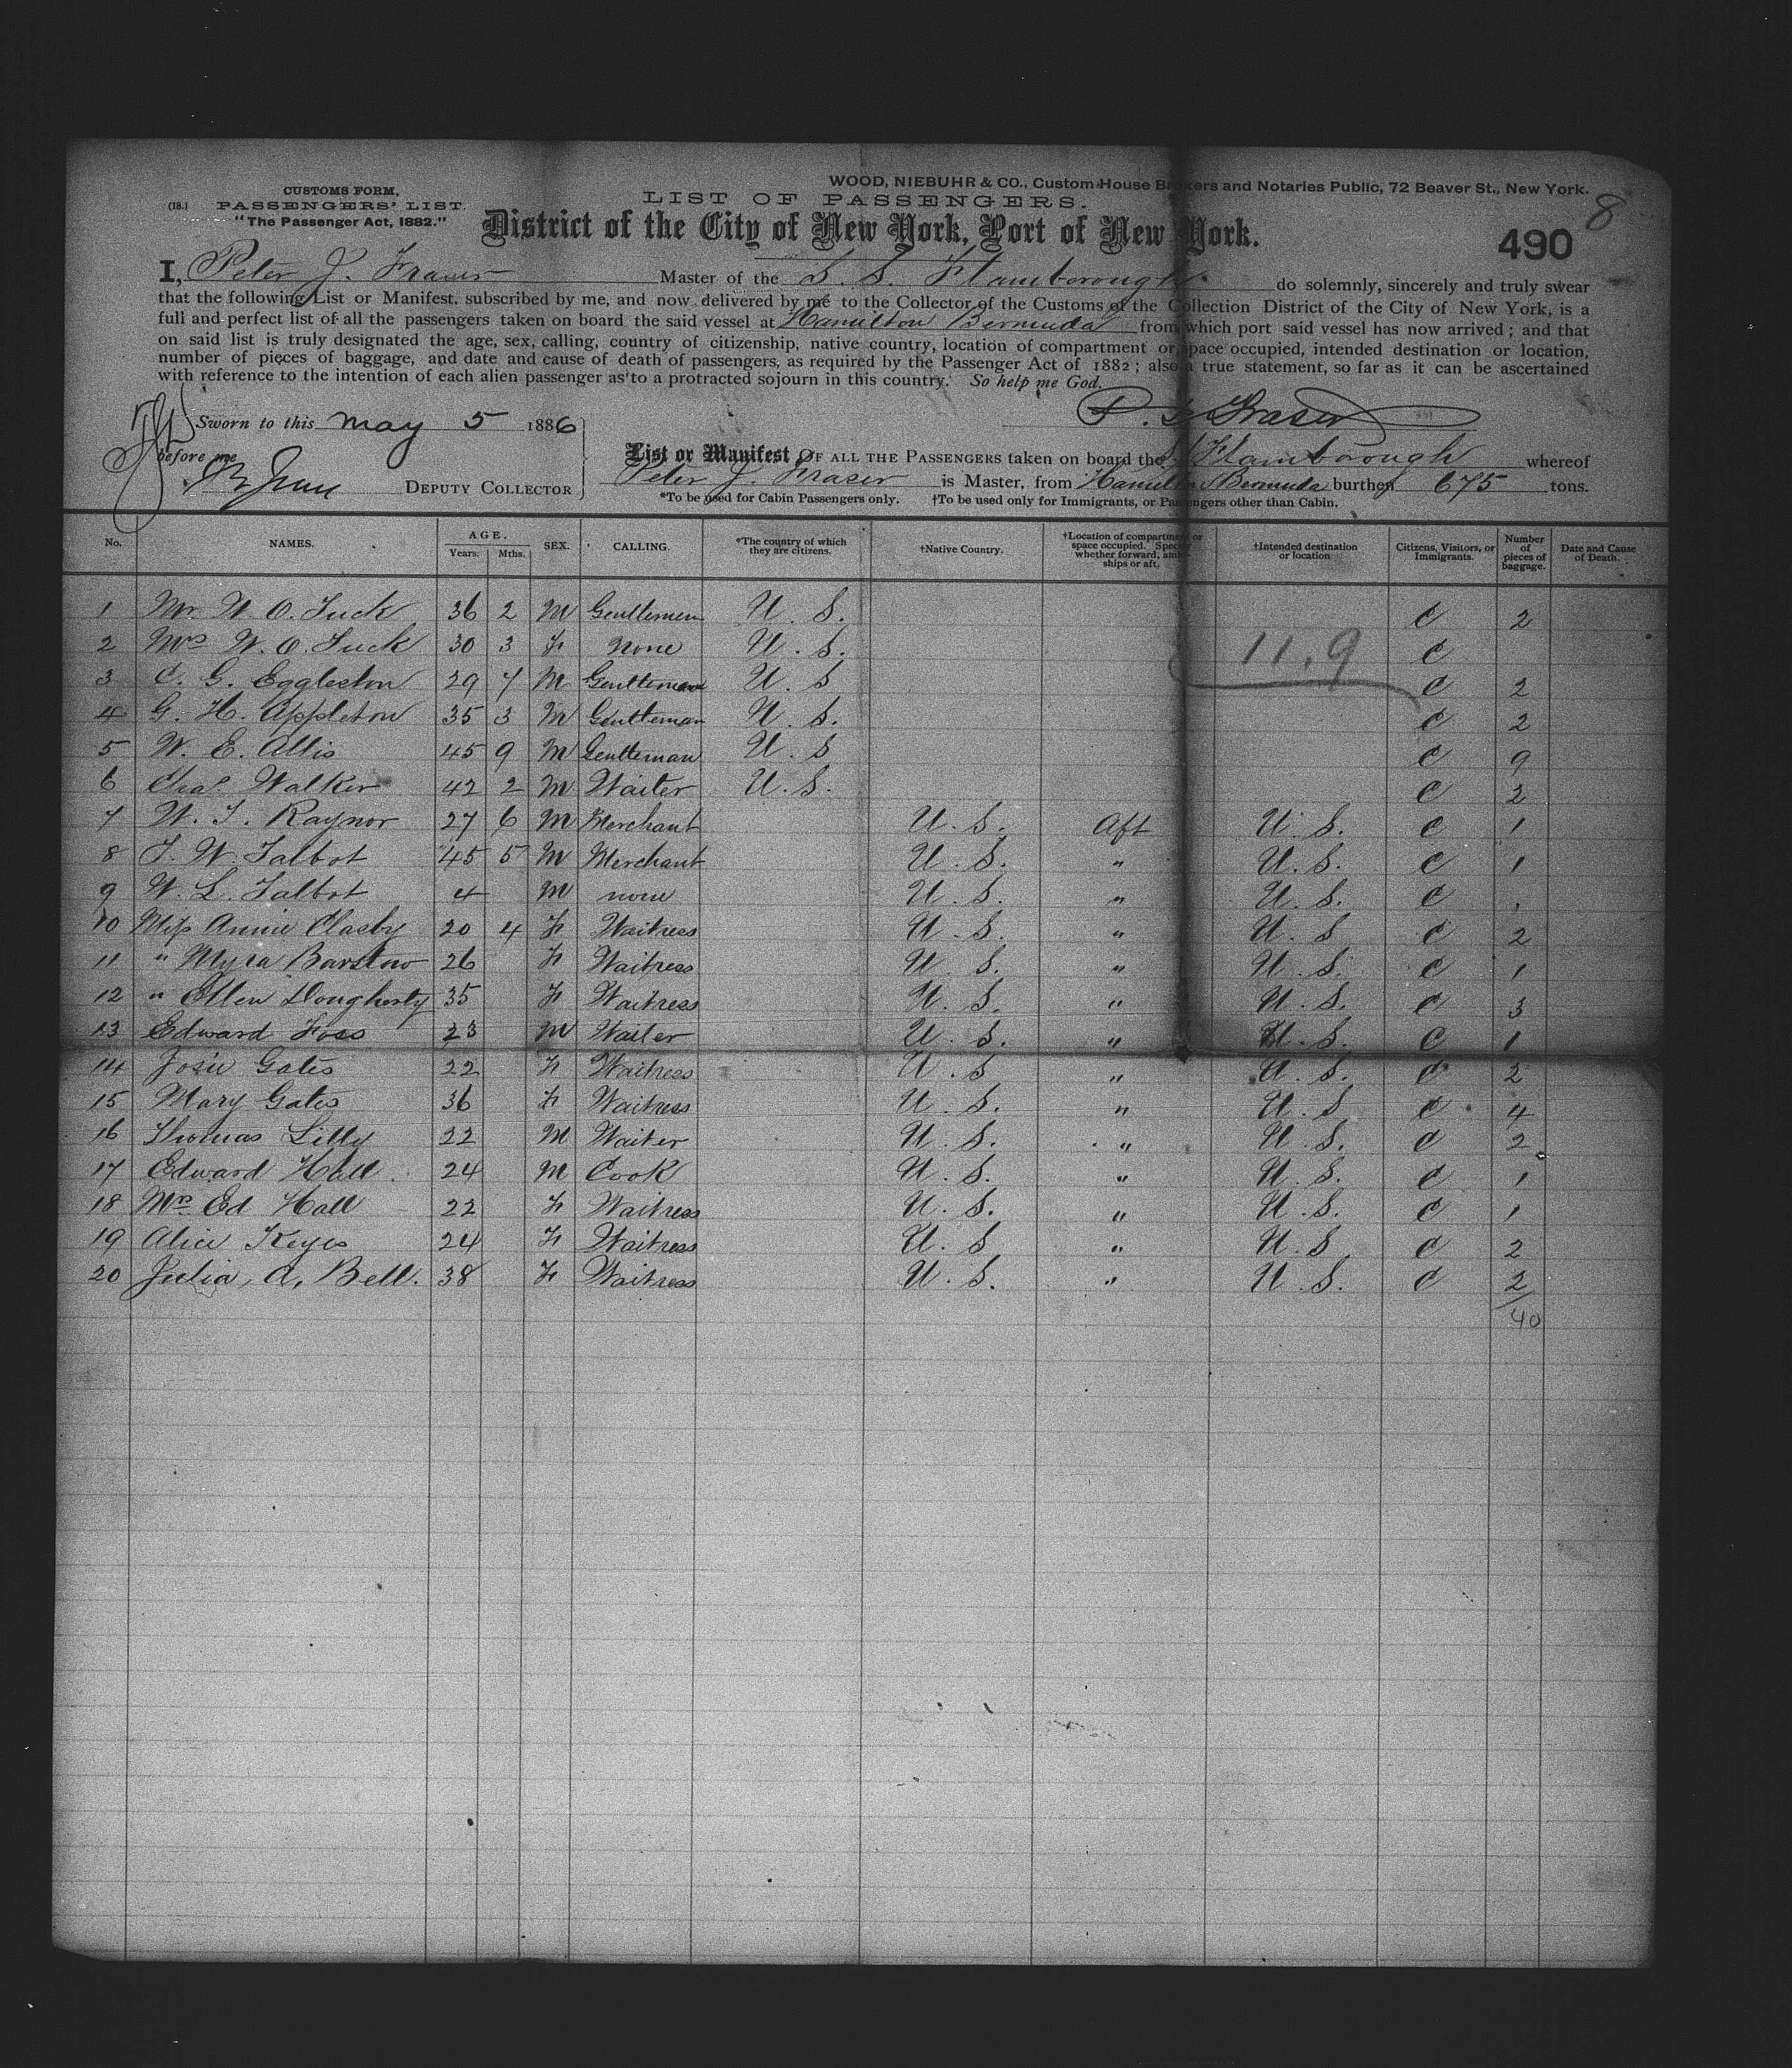 WOOD, NIEBUHR & CO., Custom House Brokers and Notaries Public, 72 Beaver St., New York.
8
CUSTOMS FORM,
(18.) PASSENGERS' LIST.
"The Passenger Act, 1882."
LIST OF PASSENGERS.
District of the City of New York, Port of New York.
490
I, Peter J. Fraser Master of the S. S. Flamborough do solemnly, sincerely and truly swear
that the following List or Manifest, subscribed by me, and now delivered by me to the Collector of the Customs of the Collection District of the City of New York, is a
full and perfect list of all the passengers taken on board the said vessel at Hamilton Bermuda from which port said vessel has now arrived; and that
on said list is truly designated the age, sex, calling, country of citizenship, native country, location of compartment or space occupied, intended destination or location,
number of pieces of baggage, and date and cause of death of passengers, as required by the Passenger Act of 1882; also a true statement, so far as it can be ascertained
with reference to the intention of each alien passenger as to a protracted sojourn in this country. So help me God.
P. J. Fraser
Sworn to this May 5 1886
before me
DEPUTY COLLECTOR
List or Manifest OF ALL THE PASSENGERS taken on board the Flamborough whereof
Peter J. Fraser is Master, from Hamilton Bermuda burthen 675 tons.
*To be used for Cabin Passengers only. †To be used only for Immigrants, or Passengers other than Cabin.
No. NAMES. AGE. Years. Mths. SEX. CALLING. *The country of which they are citizens. †Native Country. †Location of compartment or space occupied. Specify whether forward, amidships or aft. †Intended destination or location Citizens, Visitors, or Immigrants. Number of pieces of baggage. Date and Cause of Death.
1 Mr. W. O. Tuck 36 2 M Gentlemen U. S. C 2
2 Mrs W. O. Tuck 30 3 F None U. S. 11.9 C
3 C. G. Eggleston 29 7 M Gentleman U. S C 2
4 G. H. Appleton 35 3 M Gentleman U. S. C 2
5 W. E. Allis 45 9 M Gentleman U. S C 9
6 Chas Walker 42 2 M Waiter U. S. C 2
7 W. T. Raynor 27 6 M Merchant U. S. Aft U. S. C 1
8 T. W. Talbot 45 5 M Merchant U. S. " U. S. C 1
9 W. L. Talbot 4 M none U. S. " U. S. C
10 Miss Annie Clasby 20 4 F Waitress U. S. " U. S C 2
11 " Myra Barstow 26 F Waitress U. S. " U. S. C 1
12 " Ellen Dougherty 35 F Waitress U. S. " U. S. C 3
13 Edward Foss 23 M Waiter U. S. " U. S. C 1
14 Josie Gates 22 F Waitress U. S " U. S. C 2
15 Mary Gates 36 F Waitress U. S. " U. S C 4
16 Thomas Lilly 22 M Waiter U. S. " U. S. C 2
17 Edward Hall 24 M Cook U. S. " U. S. C 1
18 Mrs Ed Hall 22 F Waitress U. S. " U. S. C 1
19 Alice Keyes 24 F Waitress U. S " U. S C 2
20 Julia, A, Bell. 38 F Waitress U. S. " U. S. C 2
40